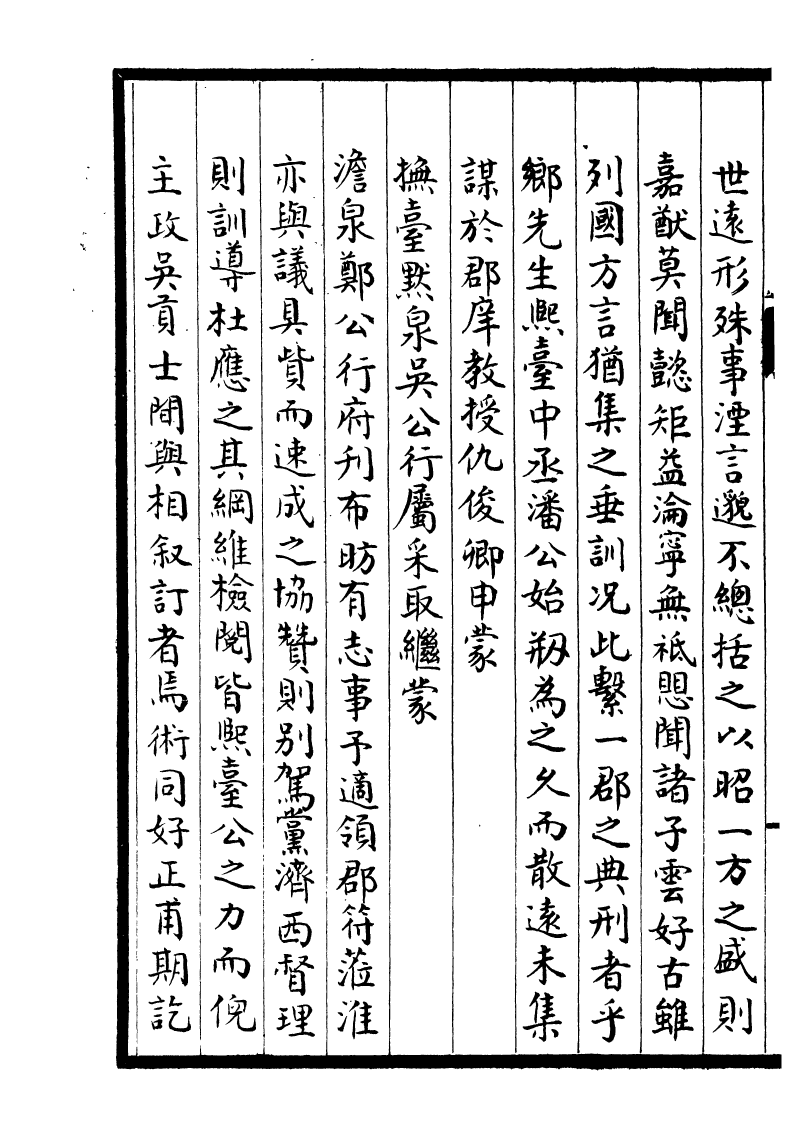 世遠形殊事湮言邈不總括之以昭一方之盛則
嘉猷莫聞懿矩益淪寧無祗愳聞諸子雲好古雖
列國方言猶集之垂訓况此繫一郡之典刑者乎
鄉先生熙臺中丞潘公始刱為之久而散遠未集
謀於郡庠教授仇俊卿申蒙
撫臺默泉吳公行屬采取繼蒙
澹泉鄭公行府刋布昉有志事予適領郡符蒞淮
亦與議具貲而速成之協贊則别駕黨濟西督理
則訓導杜應之其綱維檢閱皆熙臺公之力而俛
主政吳貢士間與相叙訂者焉術同好正甫期訖